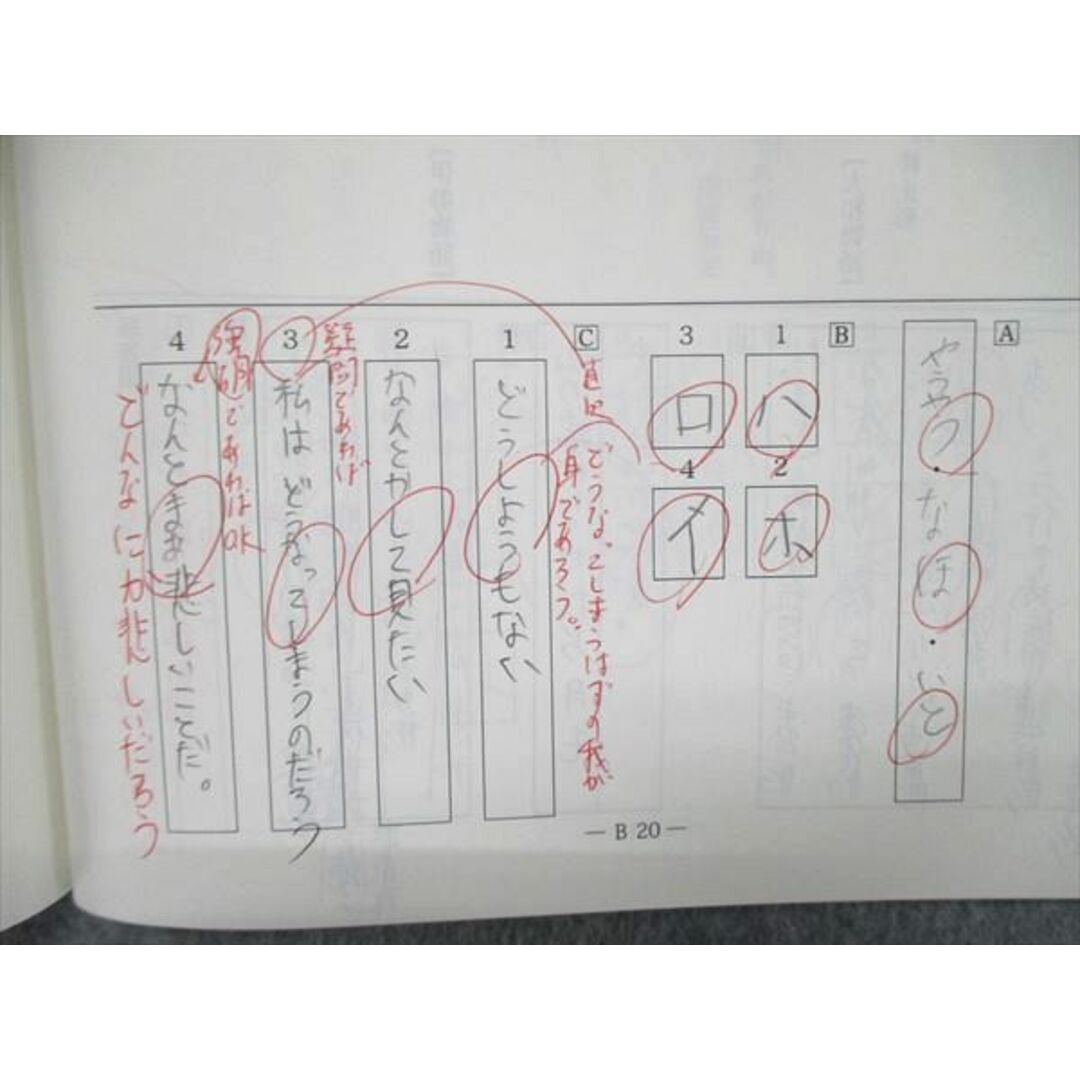 A
やうやう・なほ・いと
B
1
ハ
2
ホ
3
ロ
4
イ
C
直也
どうなってしまうはずの我が
身であろう。
1
どうしようもない
2
なんとかして見たい
疑問であれば
3
私はどうなってしまうのだろう
強調であればOK
4
なんとまあ悲しいことだ。
どんなにか悲しいだろう
— B 20 —